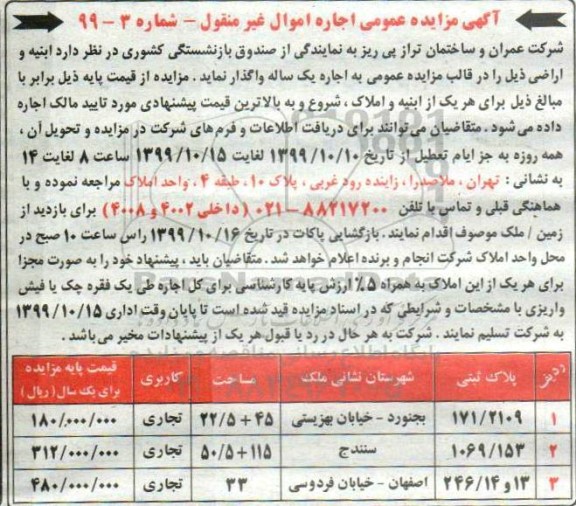 آگهی مزایده عمومی اجاره اموال غیر منقول - شماره ۳ - ۹۹
شرکت عمران و ساختمان تراز پی ریز به نمایندگی از صندوق بازنشستگی کشوری در نظر دارد ابنیه و
اراضی ذیل را در قالب مزایده عمومی به اجاره یک ساله واگذار نماید . مزایده از قیمت پایه ذیل برابر با
مبالغ ذیل برای هر یک از ابنیه و املاک ، شروع و به بالاترین قیمت پیشنهادی مورد تایید مالک اجاره
داده می شود . متقاضیان می توانند برای دریافت اطلاعات و فرم های شرکت در مزایده و تحویل آن ،
همه روزه به جز ایام تعطیل از تاریخ ۱۳۹۹/۱۰/۱۰ لغایت ۱۳۹۹/۱۰/۱۵ ساعت ۸ لغایت ۱۴
به نشانی : تهران ، ملاصدرا ، زاینده رود غربی ، پلاک ۱۰، طبقه ۴ ، واحد املاک مراجعه نموده و با
هماهنگی قبلی و تماس با تلفن ۸۸۲۱۷۲۰۰ - ۰۲۱ ( داخلی ۴۰۰۲ و ۴۰۰۸ ) برای بازدید از
زمین / ملک موصوف اقدام نمایند . بازگشایی پاکات در تاریخ ۱۳۹۹/۱۰/۱۶ راس ساعت ۱۰ صبح در
محل واحد املاک شرکت انجام و برنده اعلام خواهد شد . متقاضیان باید ، پیشنهاد خود را به صورت مجزا
برای هر یک از این املاک به همراه ۵٪ ارزش پایه کارشناسی برای کل اجاره طی یک فقره چک یا فیش
واریزی با مشخصات و شرایطی که در اسناد مزایده قید شده است تا پایان وقت اداری ۱۳۹۹/۱۰/۱۵
به شرکت تسلیم نمایند . شرکت به هر حال در رد یا قبول هر یک از پیشنهادات مخیر می باشد .
ردیف پلاک ثبتی شهرستان نشانی ملک مساحت کاربری قیمت پایه مزایده برای یک سال ( ریال )
۱ ۱۷۱/۲۱۰۹ بجنورد - خیابان بهزیستی ۴۵ + ۲۲/۵ تجاری ۱۸۰/۰۰۰/۰۰۰
۲ ۱۰۶۹/۱۵۳ سنندج ۱۱۵ + ۵۰/۵ تجاری ۳۱۲/۰۰۰/۰۰۰
۳ ۱۳ و ۲۴۶/۱۴ اصفهان - خیابان فردوسی ۳۳ تجاری ۴۸۰/۰۰۰/۰۰۰